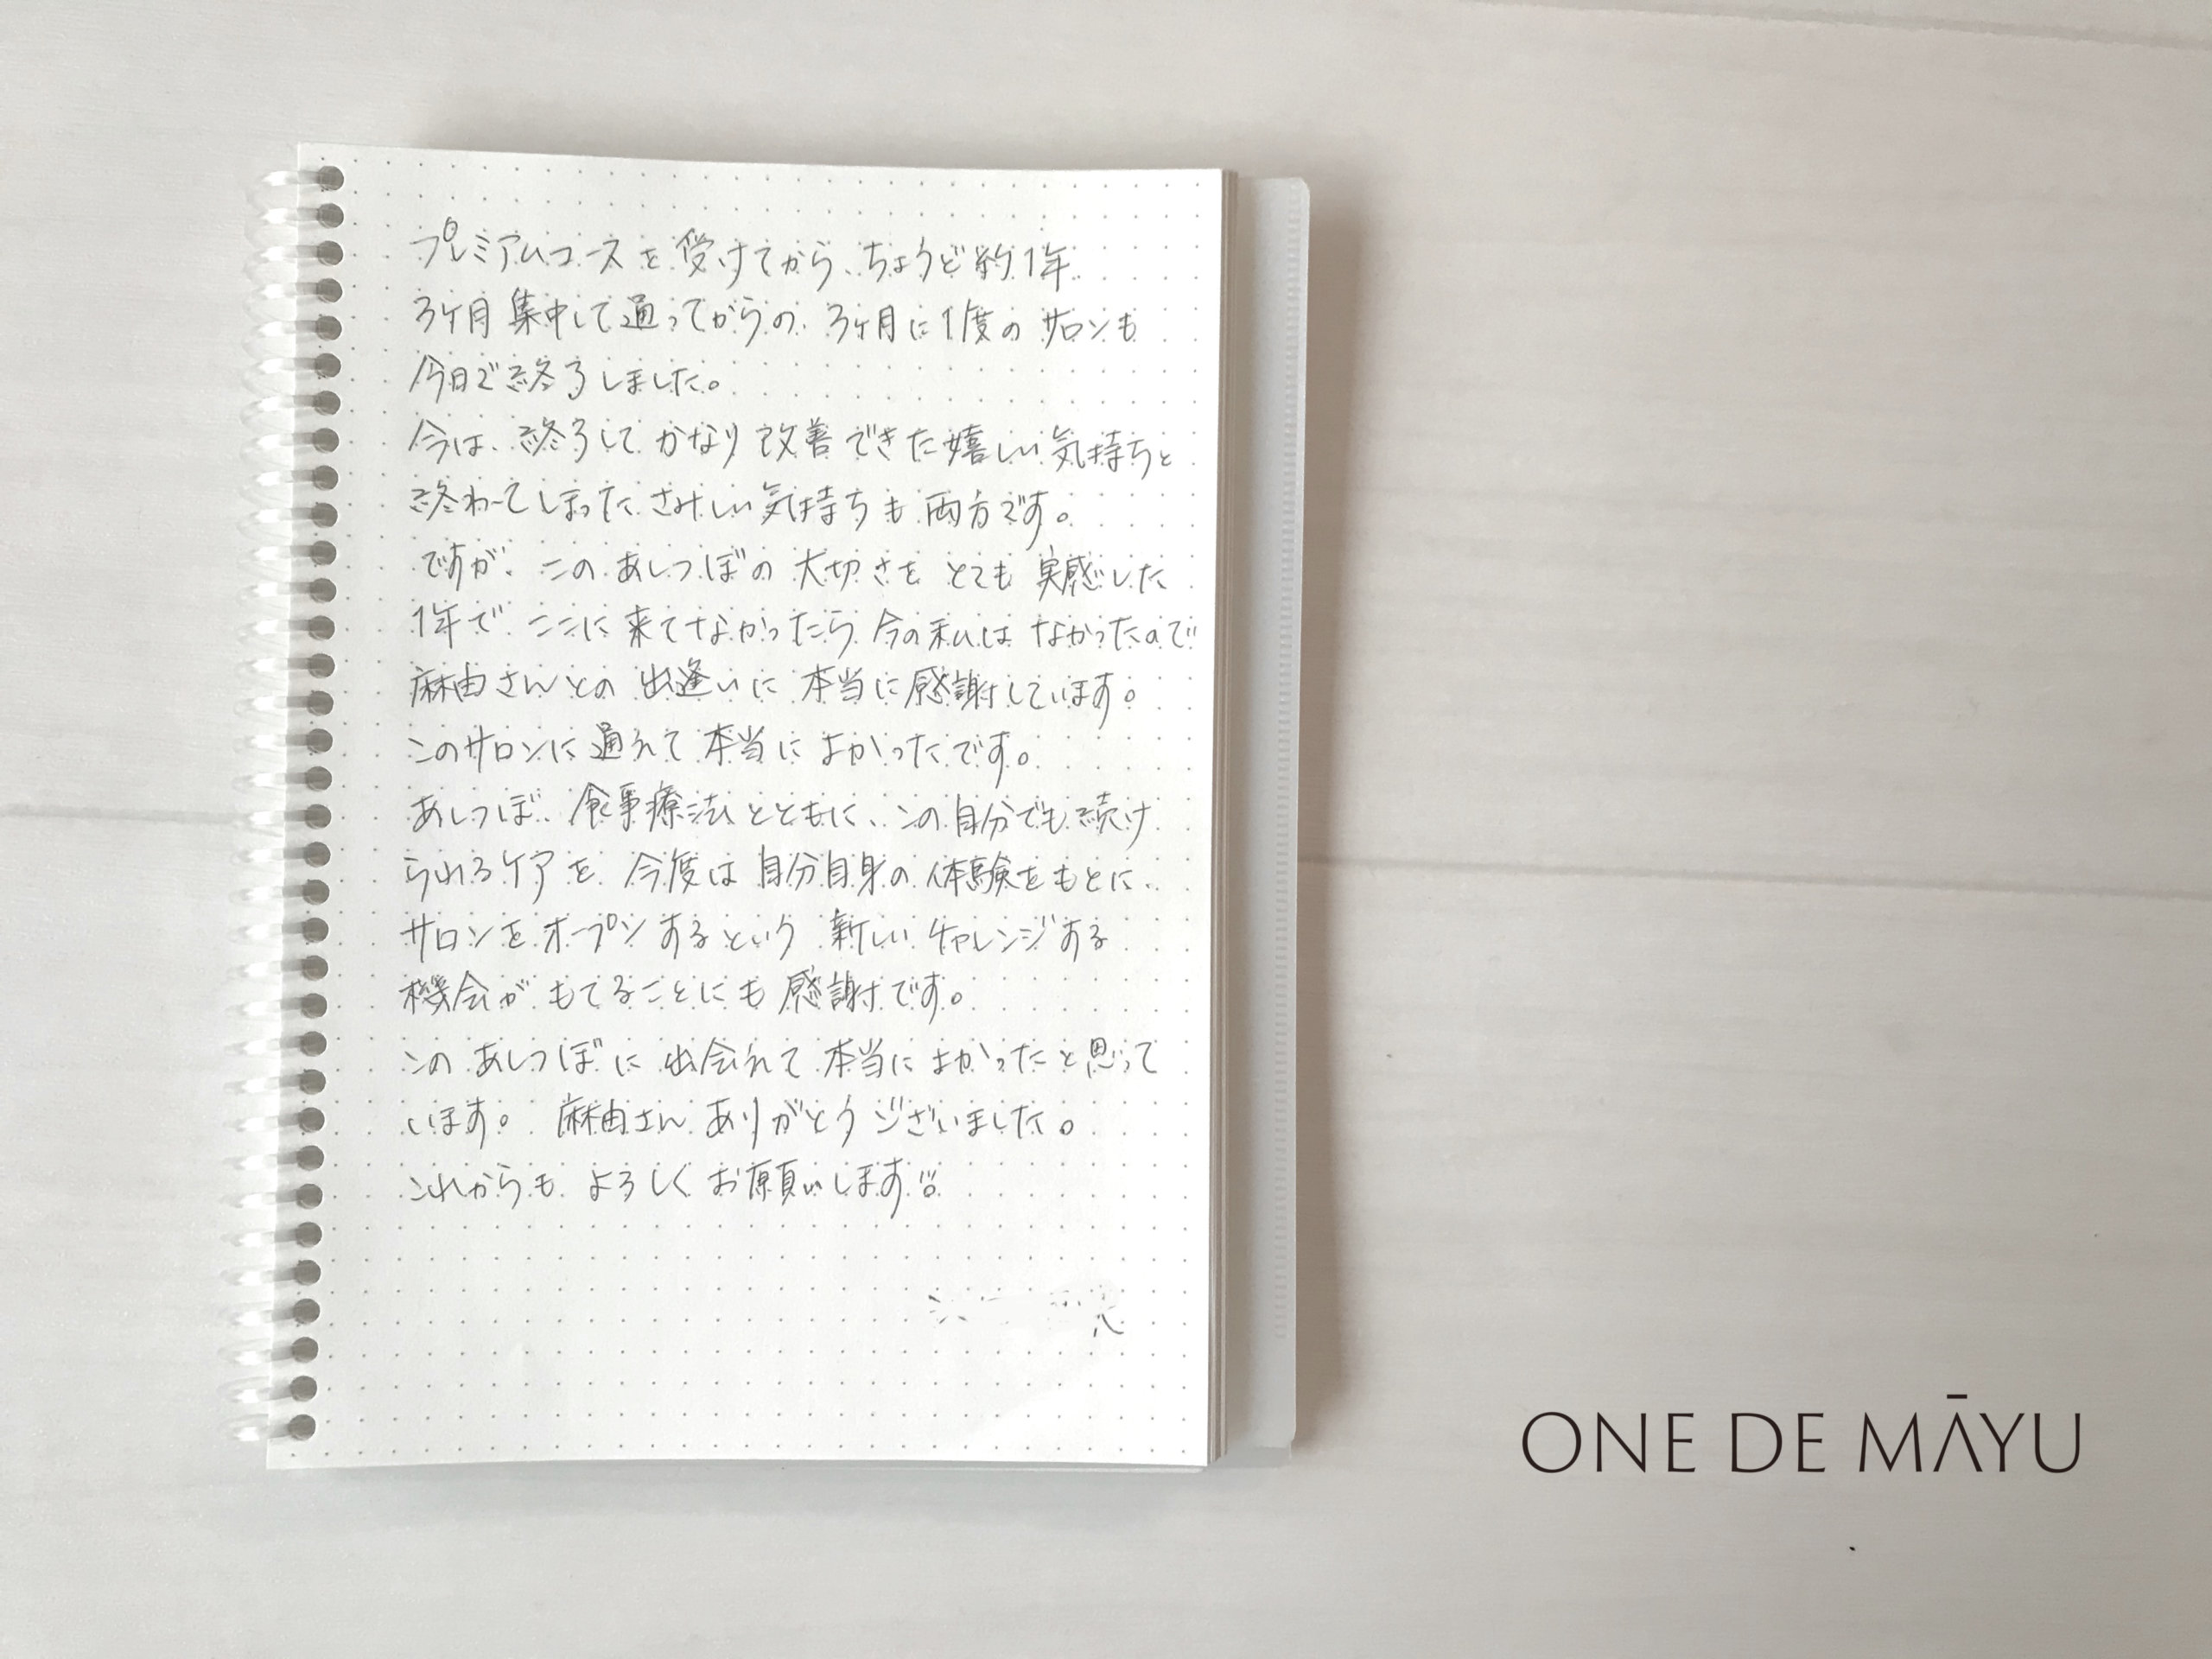 プレミアムコースを受けてから、ちょうど約1年
3ヶ月集中して通ってからの、3ヶ月に1度のサロンも
今日で終了しました。
今は、終了してかなり改善できた嬉しい気持ちと
終わってしまったさみしい気持ちも両方です。
ですが、このあしつぼの大切さをとても実感した
1年で、ここに来てなかったら今の私はなかったので
麻由さんとの出逢いに本当に感謝しています。
このサロンに通えて本当によかったです。
あしつぼ、食事療法とともに、この自分でも続け
られるケアを、今度は自分自身の体験をもとに、
サロンをオープンするという新しいチャレンジする
機会がもてることにも感謝です。
このあしつぼに出会えて本当によかったと思って
います。麻由さんありがとうございました。
これからもよろしくお願いします!!
ONE DE MĀYU